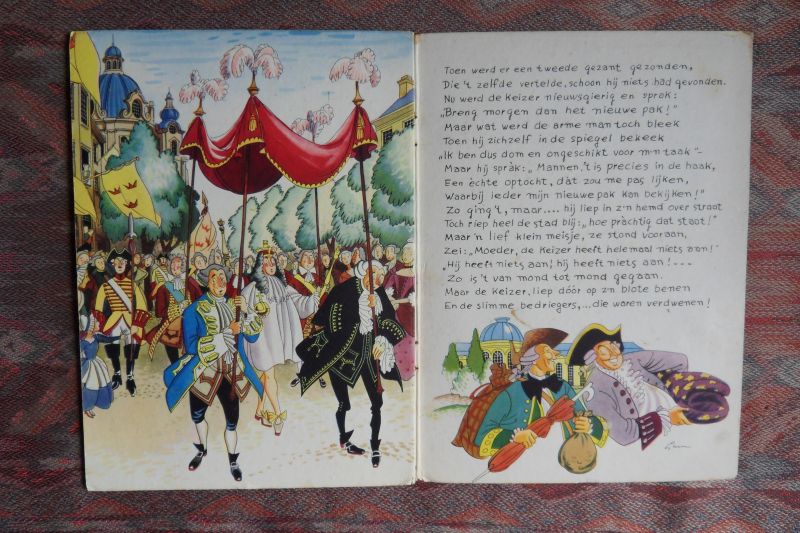 Toen werd er een tweede gezant gezonden,
Die 't zelfde vertelde, schoon hij niets had gevonden.
Nu werd de Keizer nieuwsgierig en sprak:
„Breng morgen dan het nieuwe pak!"
Maar wat werd de arme man toch bleek
Toen hij zichzelf in de spiegel bekeek
„Ik ben dus dom en ongeschikt voor m'n taak"-
Maar hij spràk: „Mannen, 't is precies in de haak,
Een èchte optocht, dàt zou me pas lijken,
Waarbij ieder mijn nieuwe pak kan bekijken!"
Zo ging 't, maar.... hij liep in z'n hemd over straat
Toch riep heel de stad blij: „hoe pràchtig dat staat!"
Maar 'n lief klein meisje, ze stond vooraan,
Zei: „Moeder, de Keizer heeft helemaal niets aan!"
„Hij heeft niets aan, hij heeft niets aan!---
Zo is 't van mond tot mond gegaan.
Maar de Keizer, liep dóór op z'n blote benen
En de slimme bedriegers,... die waren verdwenen!